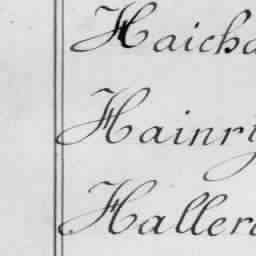 Haicho
Hainry
Hallero